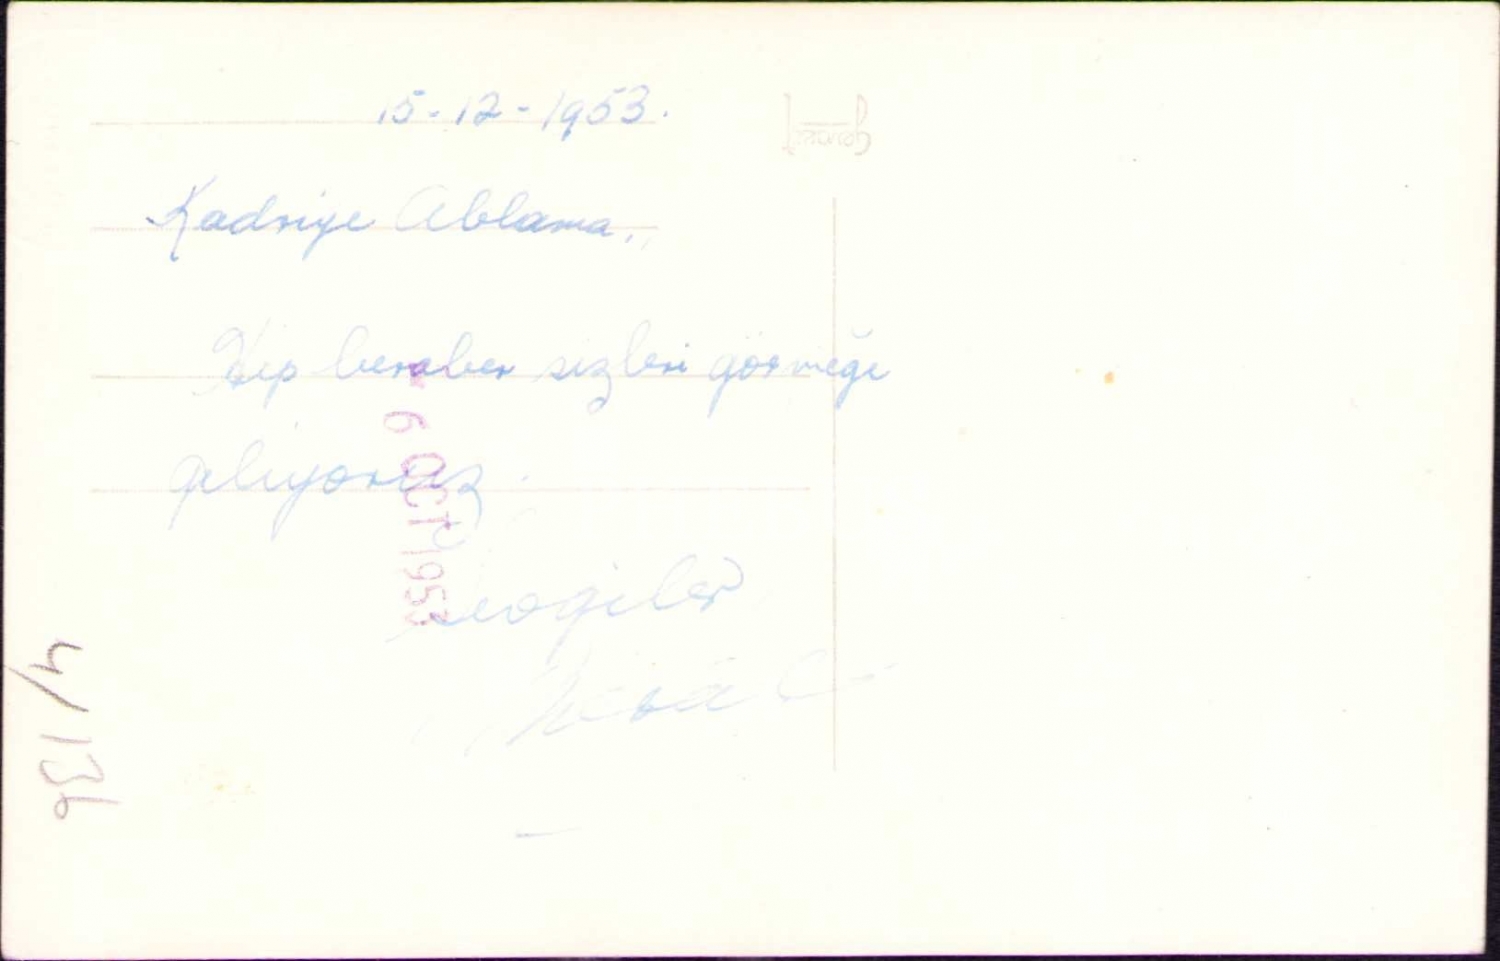 15-12-1953.
Kadriye Ablama,
Hep beraber sizleri görmeğe
geliyoruz.
Sevgiler
6 OCT 1953
4/136
Gevaert